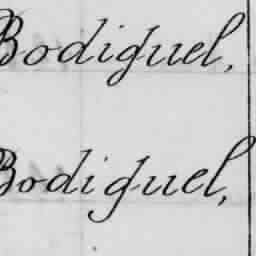 Bodiguel,
Bodiguel,